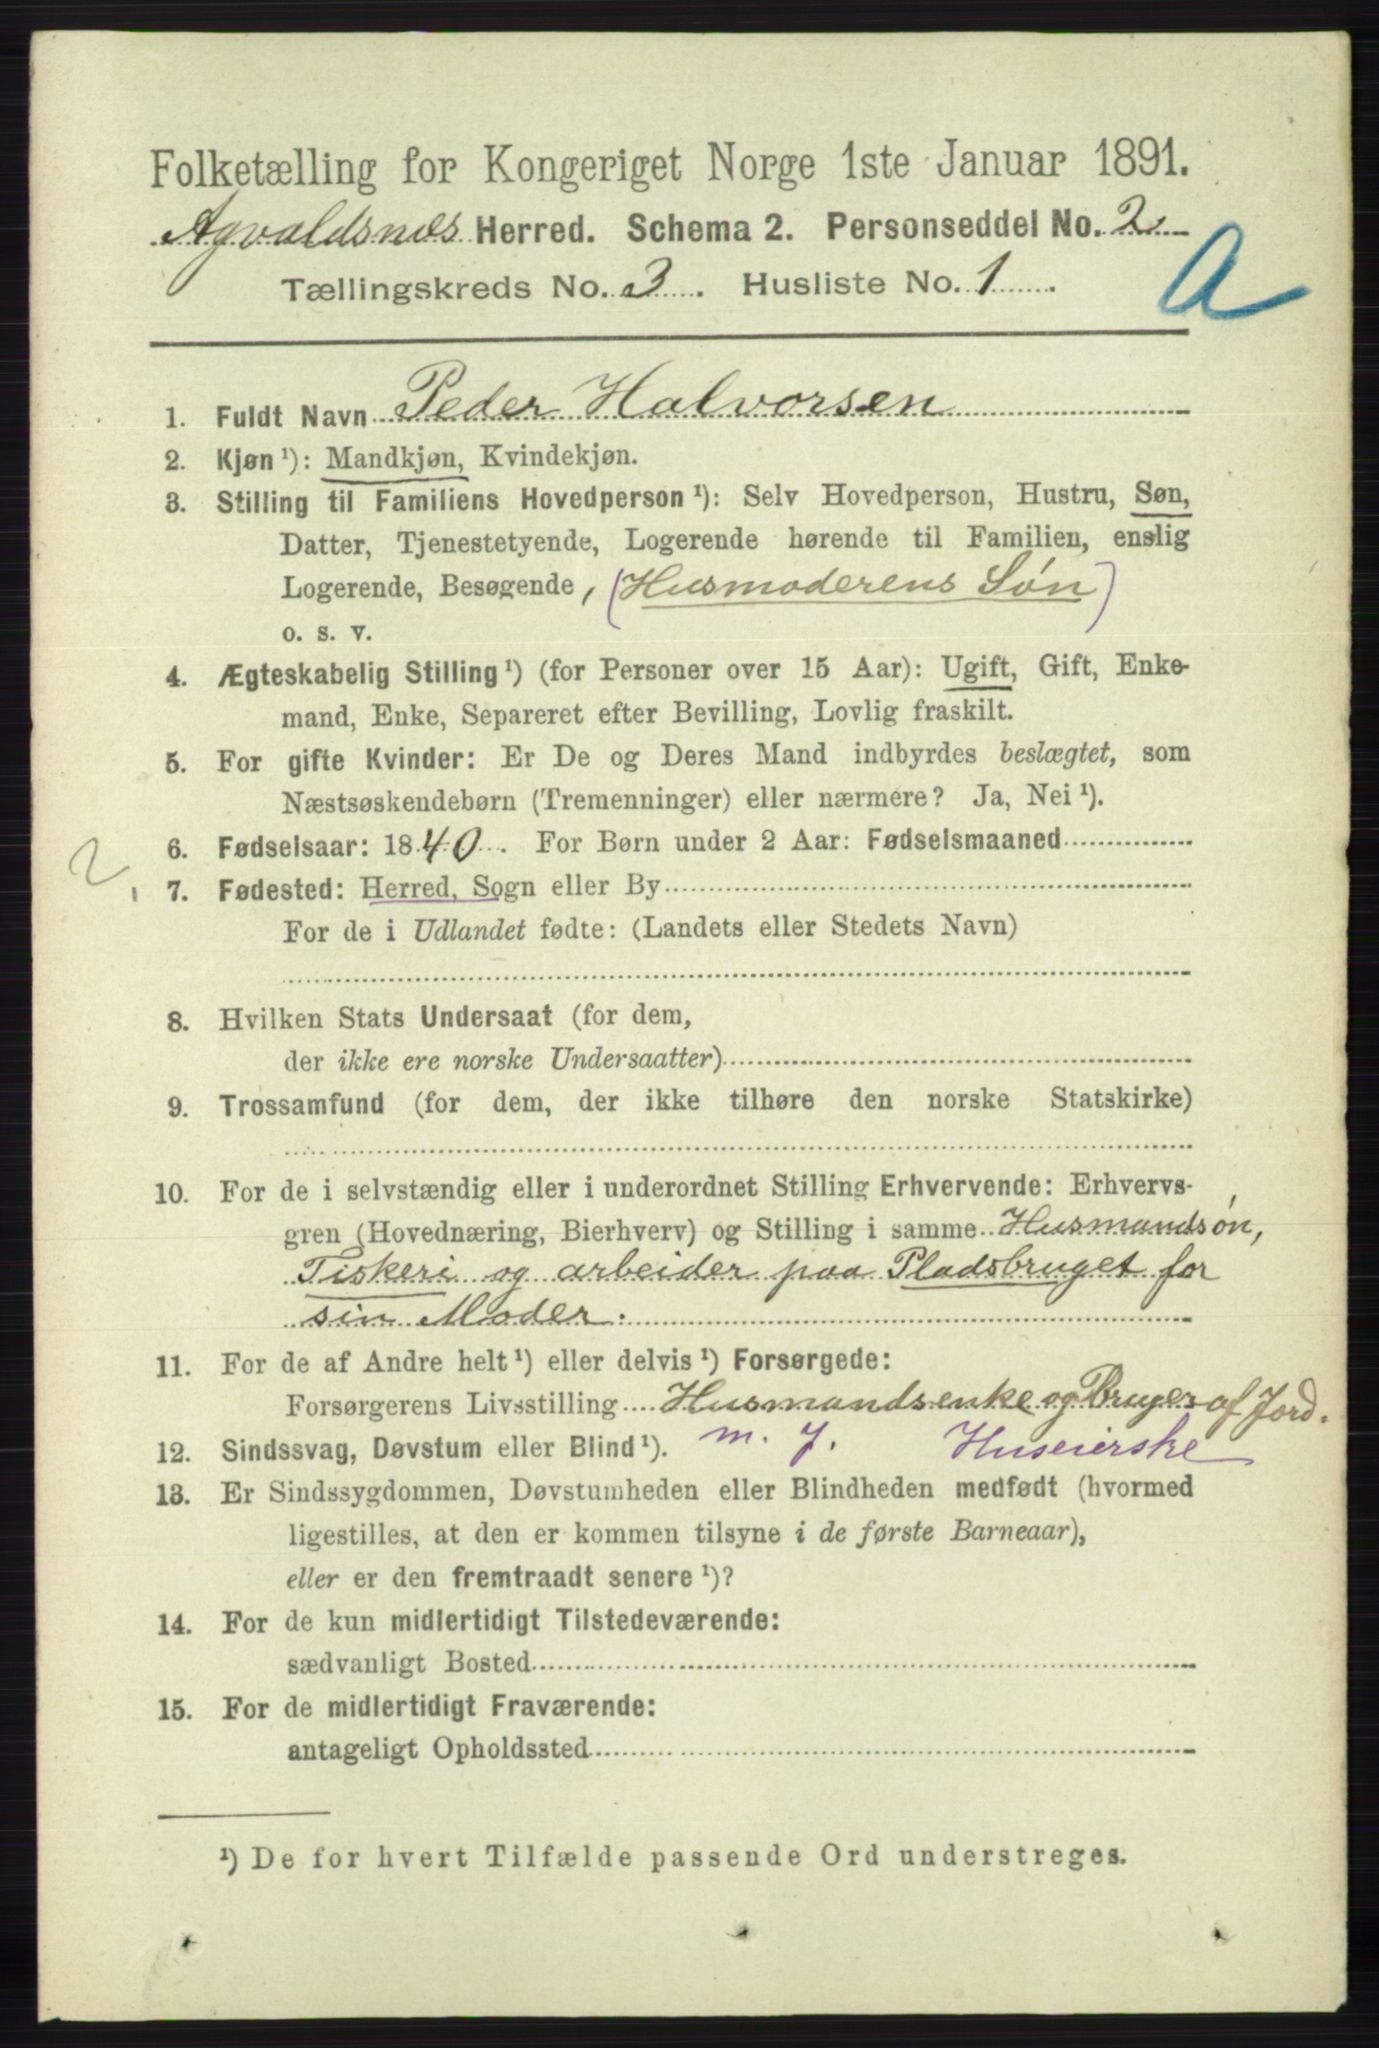 Folketælling for Kongeriget Norge 1ste Januar 1891.
Agvaldsnæs Herred. Schema 2. Personseddel No. 2
Tællingskreds No. 3. Husliste No. 1.
A
1. Fuldt Navn Peder Halvorsen
2. Kjøn ¹): Mandkjøn, Kvindekjøn.
3. Stilling til Familiens Hovedperson ¹): Selv Hovedperson, Hustru, Søn,
Datter, Tjenestetyende, Logerende hørende til Familien, enslig
Logerende, Besøgende, (Husmoderens Søn)
o. s. v.
4. Ægteskabelig Stilling ¹) (for Personer over 15 Aar): Ugift, Gift, Enke-
mand, Enke, Separeret efter Bevilling, Lovlig fraskilt.
5. For gifte Kvinder: Er De og Deres Mand indbyrdes beslægtet, som
Næstsøskendebørn (Tremenninger) eller nærmere? Ja, Nei ¹).
2,
6. Fødselsaar: 1840. For Børn under 2 Aar: Fødselsmaaned
7. Fødested: Herred, Sogn eller By
For de i Udlandet fødte: (Landets eller Stedets Navn)
8. Hvilken Stats Undersaat (for dem,
der ikke ere norske Undersaatter)
9. Trossamfund (for dem, der ikke tilhøre den norske Statskirke)
10. For de i selvstændig eller i underordnet Stilling Erhvervende: Erhvervs-
gren (Hovednæring, Bierhverv) og Stilling i samme Husmandsøn,
Fiskeri og arbeider paa Pladsbruget for
sin Moder.
11. For de af Andre helt ¹) eller delvis ¹) Forsørgede:
Forsørgerens Livsstilling Husmandsenke og Bruger af Jord.
12. Sindssvag, Døvstum eller Blind ¹). m. J. Huseierske
13. Er Sindssygdommen, Døvstumheden eller Blindheden medfødt (hvormed
ligestilles, at den er kommen tilsyne i de første Barneaar),
eller er den fremtraadt senere ¹)?
14. For de kun midlertidigt Tilstedeværende:
sædvanligt Bosted
15. For de midlertidigt Fraværende:
antageligt Opholdssted
¹) De for hvert Tilfælde passende Ord understreges.